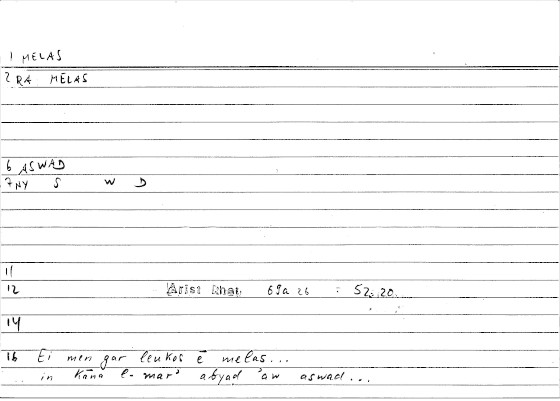 1 MELAS
2 RA MELAS
6 ASWAD
7 NY S W D
11
12 Arist Rhet 69a 26 : 52,20
14
16 Ei men gar leukos ē melas...
in kāna l-mar' abyaḍ 'aw aswad...